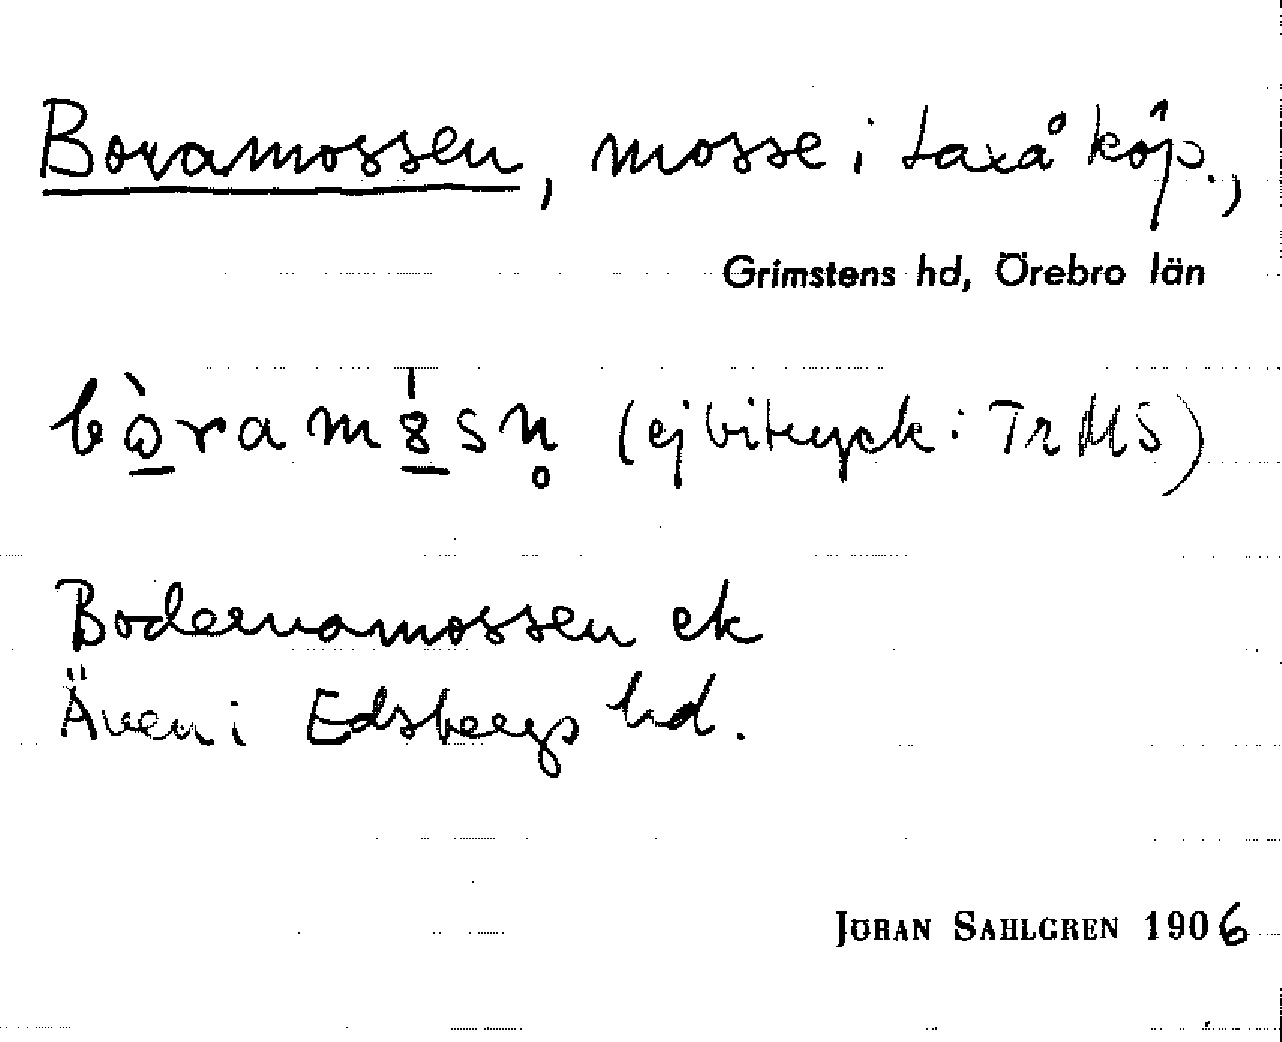 Boramossen, mosse i Laxå köp.,
Grimstens hd, Örebro län
bò̲ramȣ̲́sn̥ (ej bitryck: Tr MS)
Bodernamossen ek
Även i Edsbergs hd.
JÖRAN SAHLGREN 1906